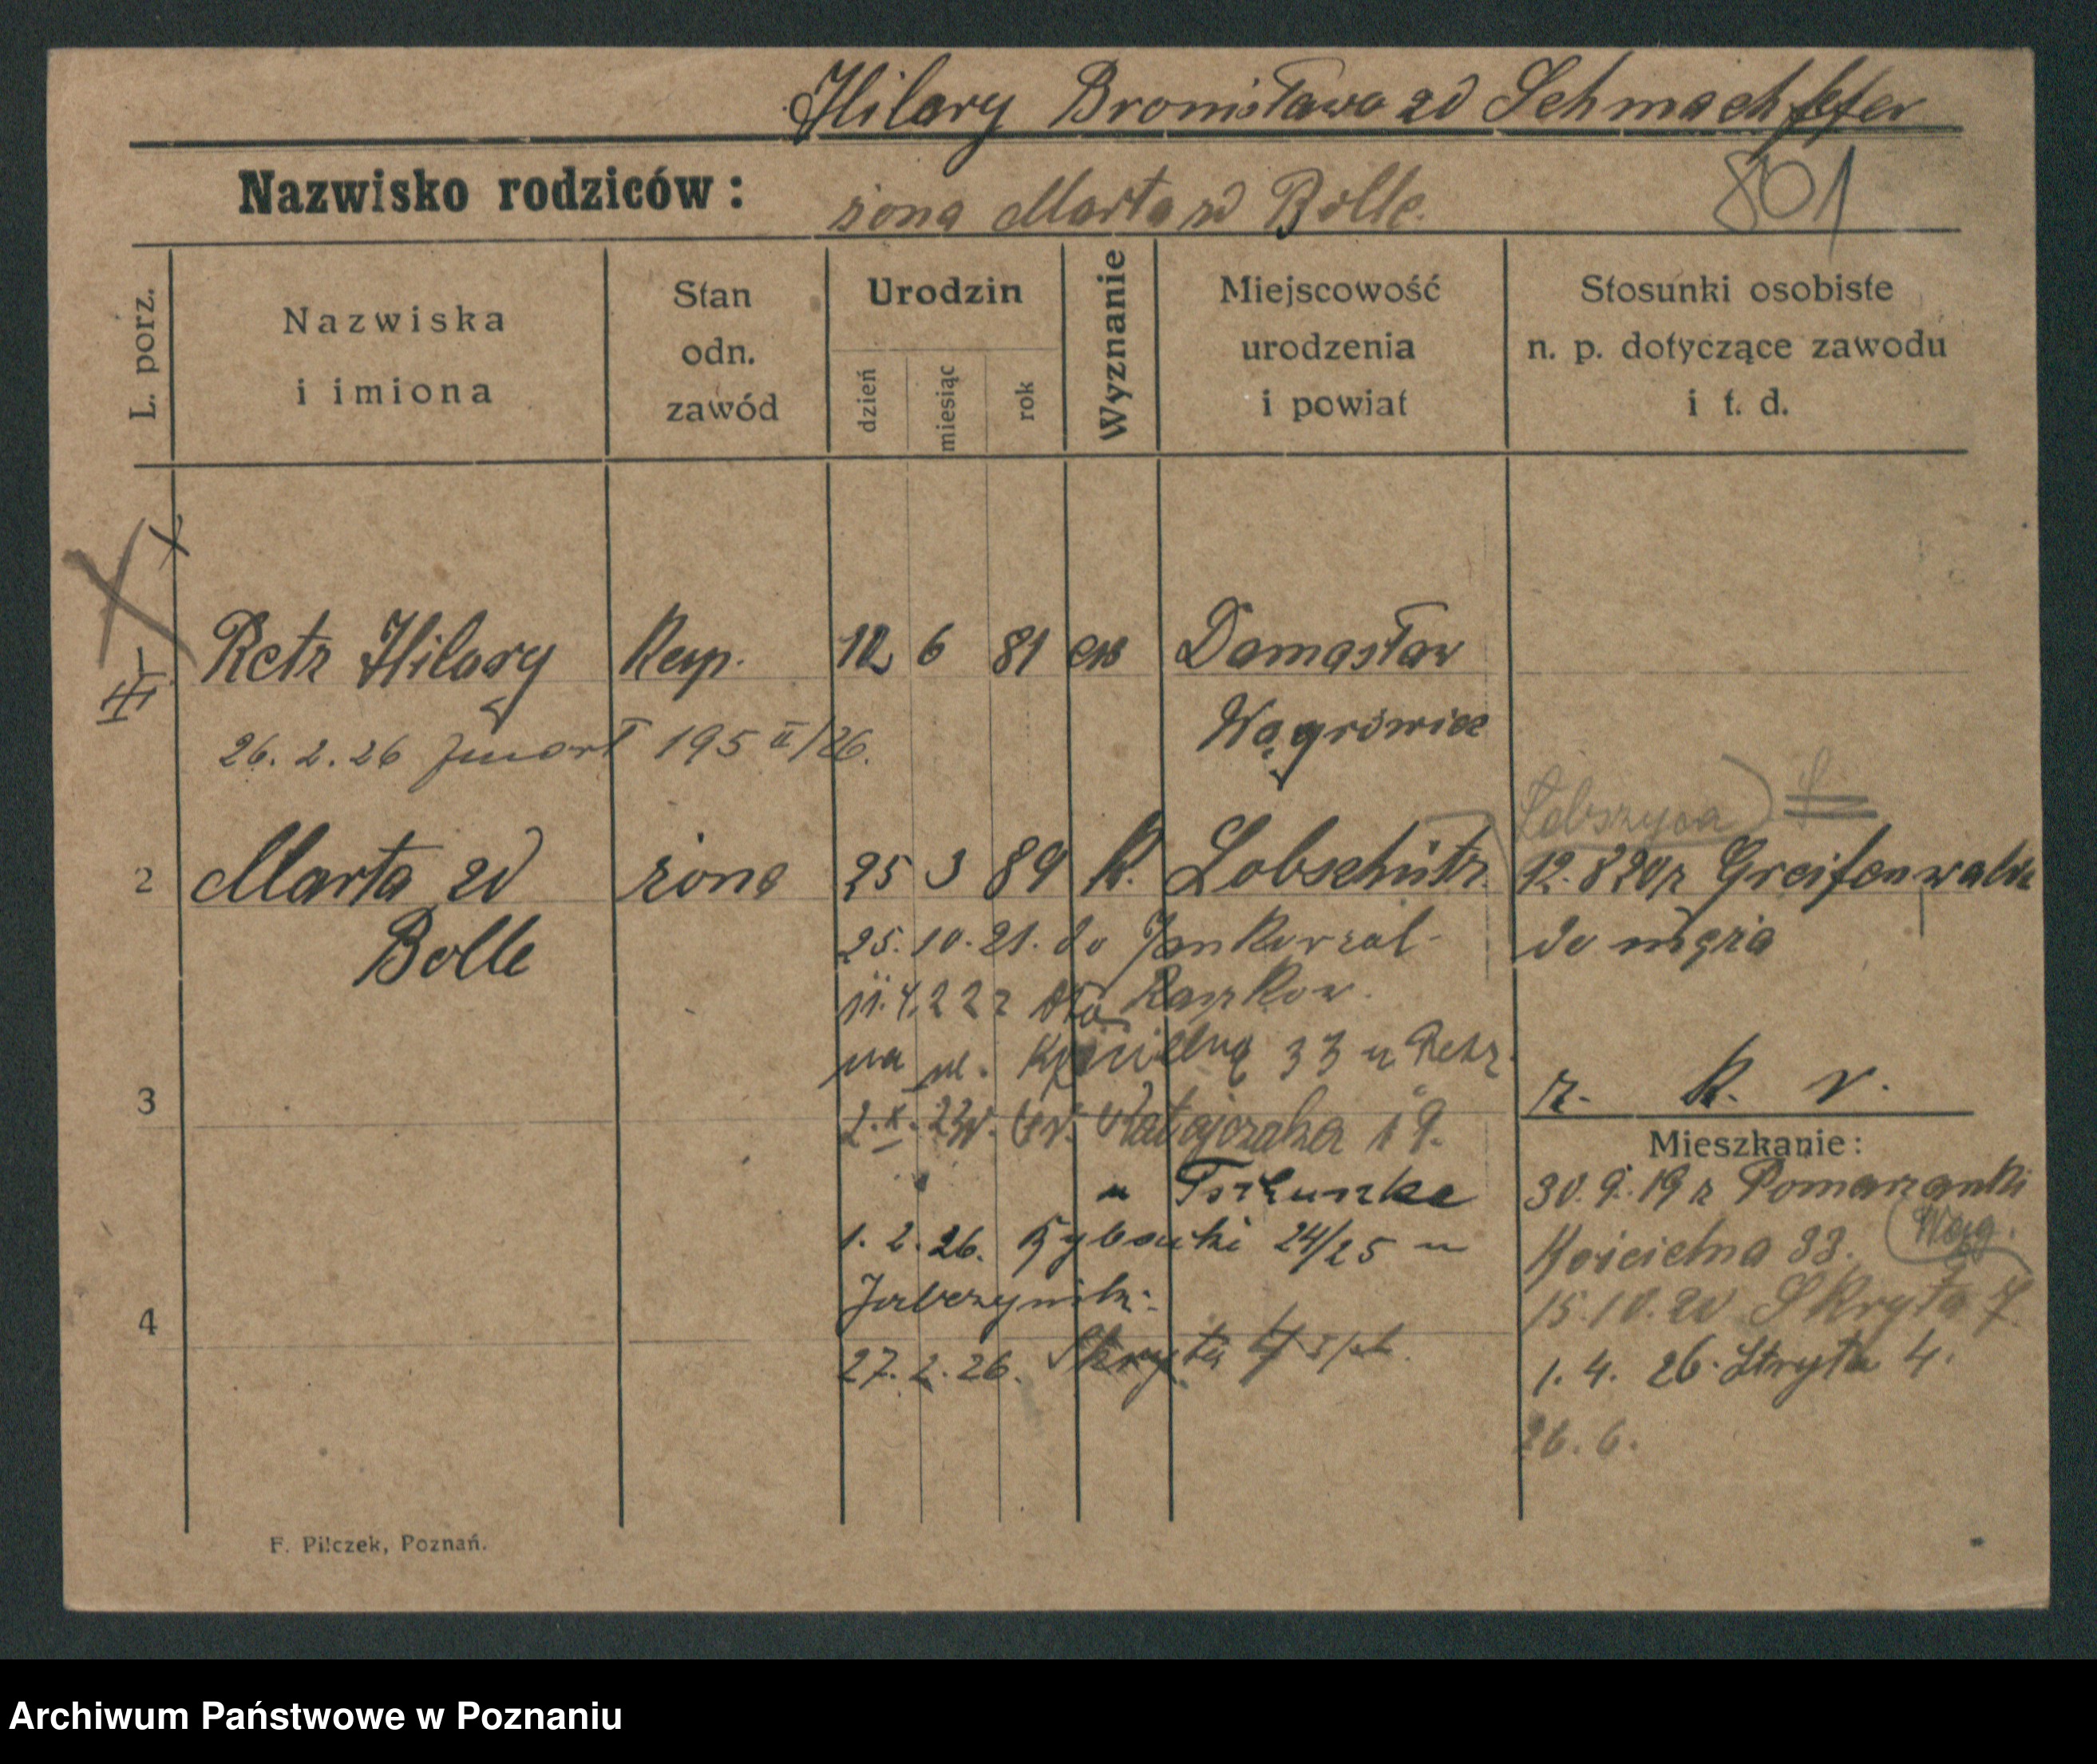 Hilary Bronisława zd Schmachpfefer
Nazwisko rodziców: żona Marta zd Bolle.
801
L. porz.
Nazwiska i imiona
Stan odn. zawód
Urodzin
dzień
miesiąc
rok
Wyznanie
Miejscowość urodzenia i powiat
Stosunki osobiste n. p. dotyczące zawodu i t. d.
Retz Hilary Kup. 12 6 81 ew Damasław
Wągrówiec
26. 2. 26 zmarł 195 II/26.
Łobszyca
2 Marta zd żona 25 3 89 k. Lobschütz 12. 8 20 z Greifenwalde
Bolle
25. 10. 21. do do męża
11. 4. 22 z Raszkow.
na ul. Kościelną 33 u Retz.
z. k. r.
3
2. X. Ratajczaka 19.
Mieszkanie:
u
30. 9. 19 z Pomarzanki
Wąg.
1. 2. 26. Rybaki 24/25 u
Kościelna 33.
15. 10. 20 Skryta 7.
4
27. 2. 26. Skryta 4
1. 4. 26. Skryta 4.
26. 6.
F. Pilczek, Poznań.
Archiwum Państwowe w Poznaniu